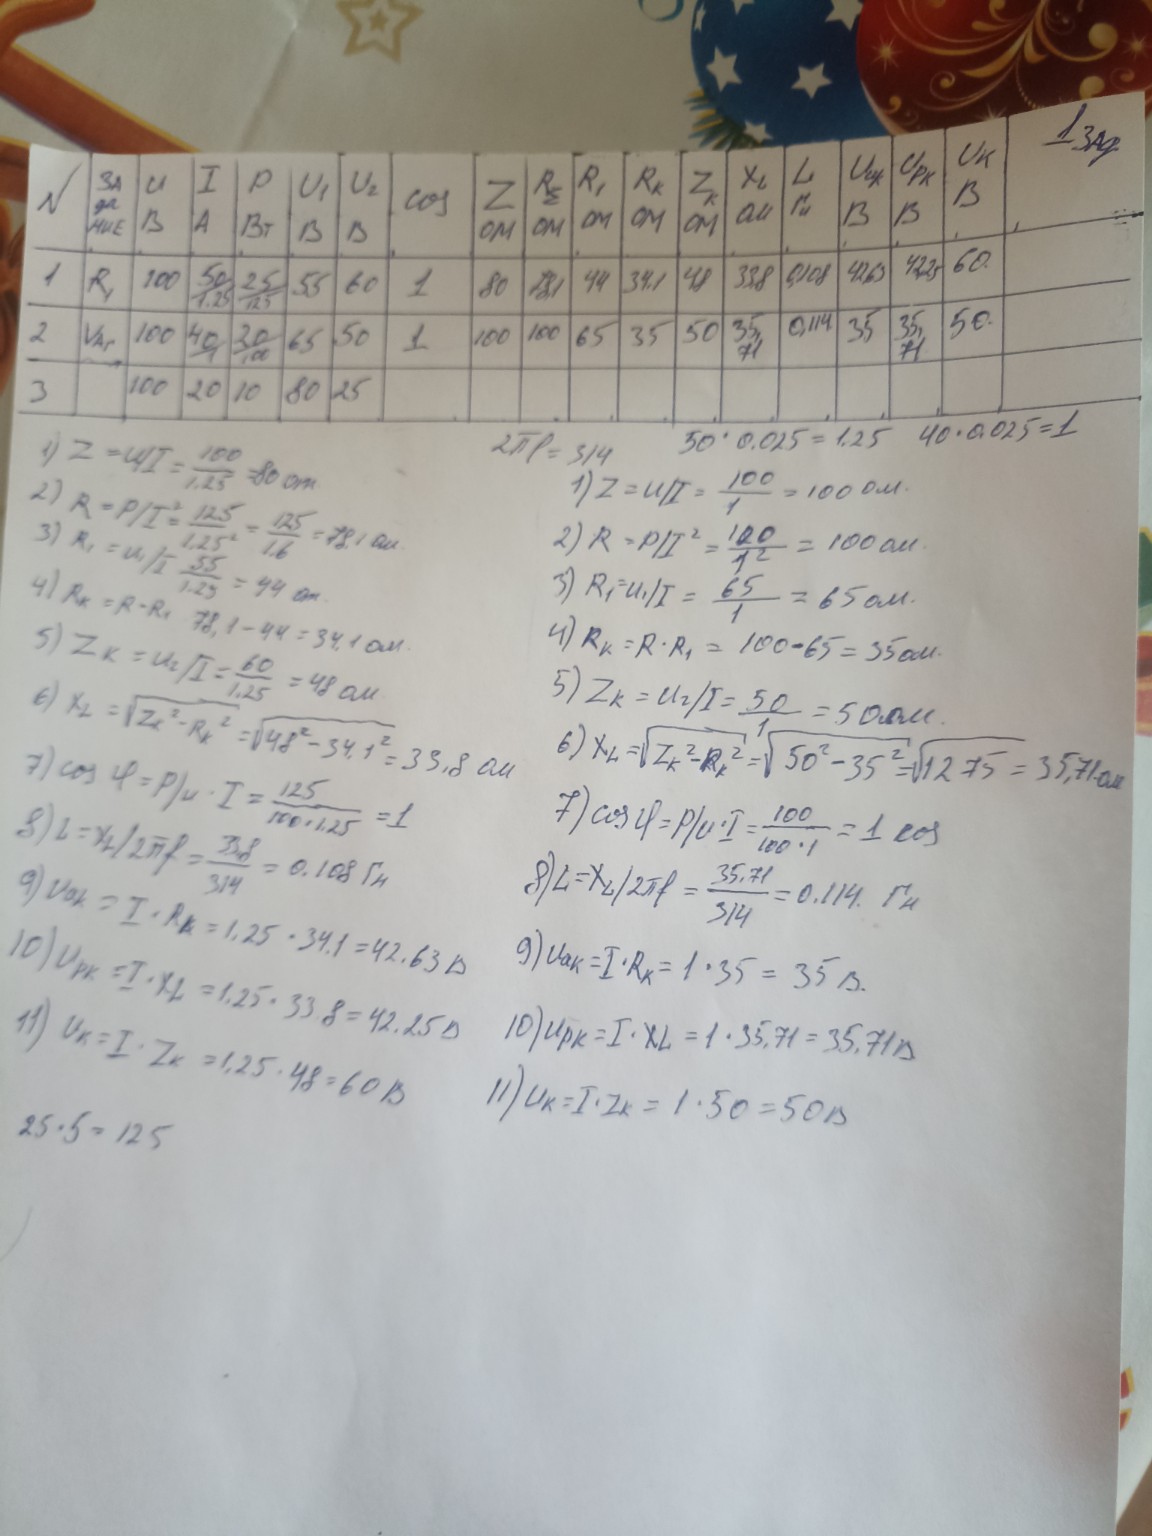 1 зад
N ЗАДАНИЕ U В I А P Вт U1 В U2 В cos Z ом RΣ ом R1 ом RK ом ZK ом XL ом L Гн Uак В Uрк В UK В
1 R1 100 50/1.25 25/125 55 60 1 80 78,1 44 34.1 48 33,8 0,108 42,63 42,25 60.
2 100 40/1 20/100 65 50 1 100 100 65 35 50 35,71 0,114 35 35,71 50.
3 100 20 10 80 25
2πf = 314 50·0.025=1.25 40·0,025=1
1) Z = U/I = 100/1.25 = 80 ом.
2) R = P/I² = 125/1.25² = 125/1.6 = 78,1 ом.
3) R1 = U1/I 55/1.25 = 44 ом.
4) RK = R-R1 78,1-44=34,1 ом.
5) ZK = U2/I = 60/1.25 = 48 ом
6) XL = √ZK²-RK² = √48²-34,1² = 33,8 ом
7) cos φ = P/U·I = 125/100·1.25 = 1
8) L = XL/2πf = 33,8/314 = 0.108 Гн
9) Uак = I·RK = 1,25·34.1 = 42.63 В
10) Uрк = I·XL = 1,25·33.8 = 42.25 В
11) UK = I·ZK = 1,25·48 = 60 В
25·5 = 125
1) Z = U/I = 100/1 = 100 ом.
2) R = P/I² = 100/1² = 100 ом.
3) R1 = U1/I = 65/1 = 65 ом.
4) RK = R-R1 = 100-65 = 35 ом.
5) ZK = U2/I = 50/1 = 50 ом.
6) XL = √ZK²-RK² = √50²-35² = √1275 = 35,71 ом
7) cos φ = P/U·I = 100/100·1 = 1 cos
8) L = XL/2πf = 35.71/314 = 0.114. Гн
9) Uак = I·RK = 1·35 = 35 В.
10) Uрк = I·XL = 1·35,71 = 35,71 В
11) UK = I·ZK = 1·50 = 50 В